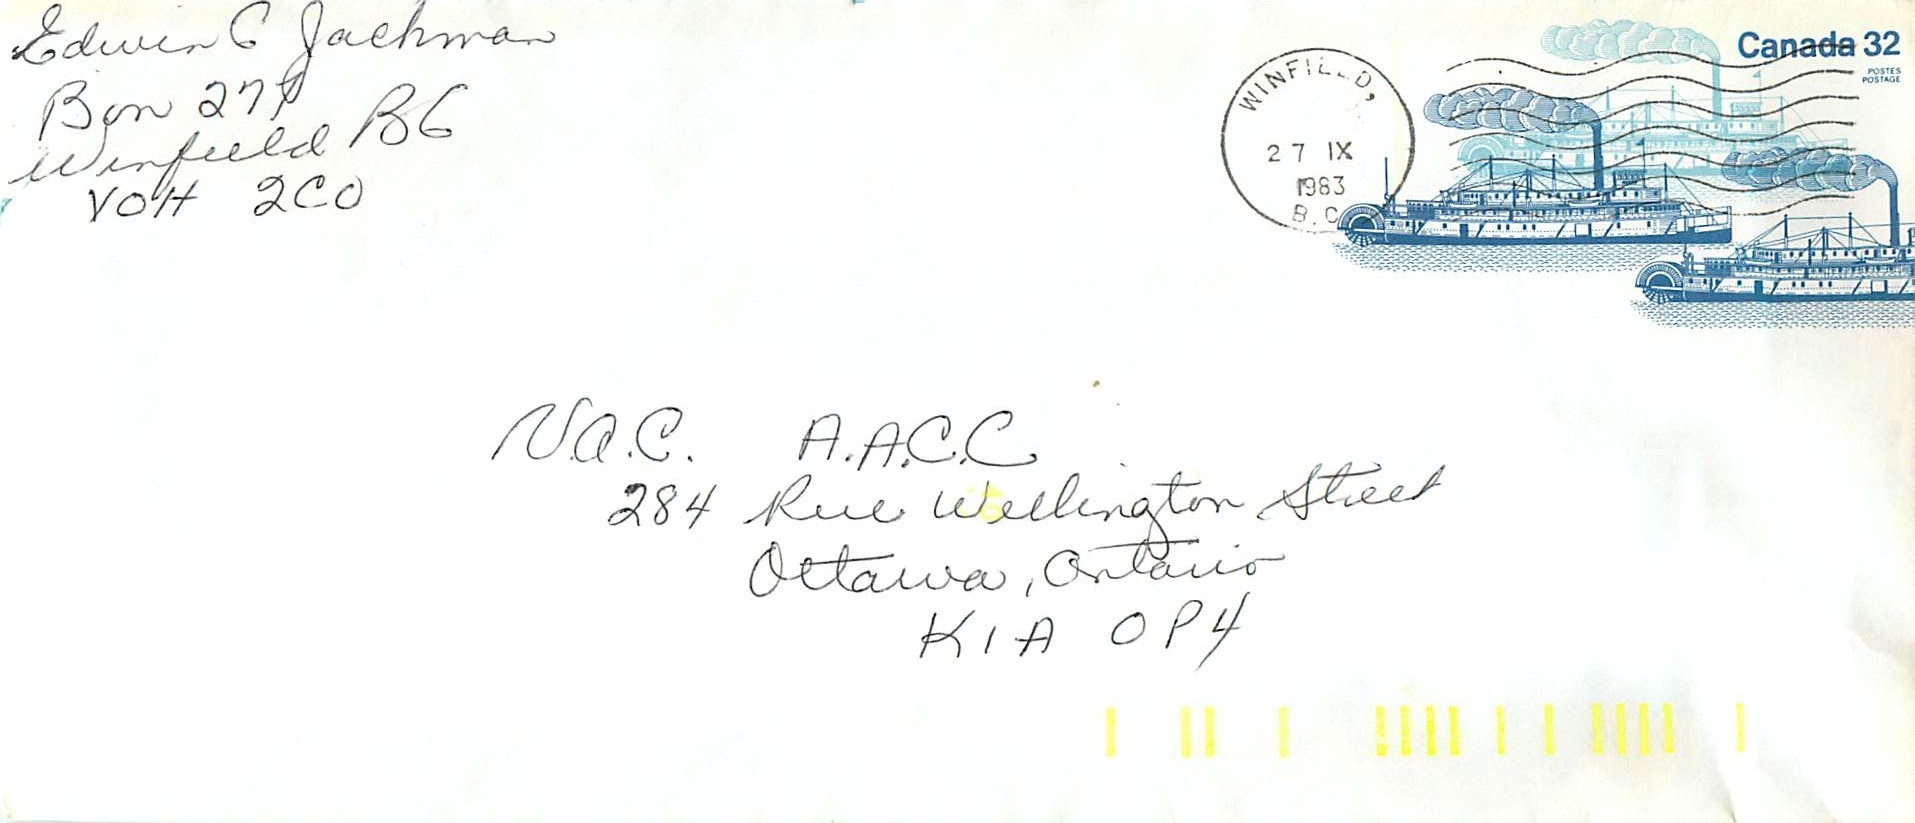 Edwin C Jackman
Box 271
Winfield BC
V0H 2C0
Canada 32
POSTES
POSTAGE
WINFIELD,
27 IX
1983
B.C.
V.A.C. A.A.C.C
284 Rue Wellington Street
Ottawa, Ontario
K1A 0P4